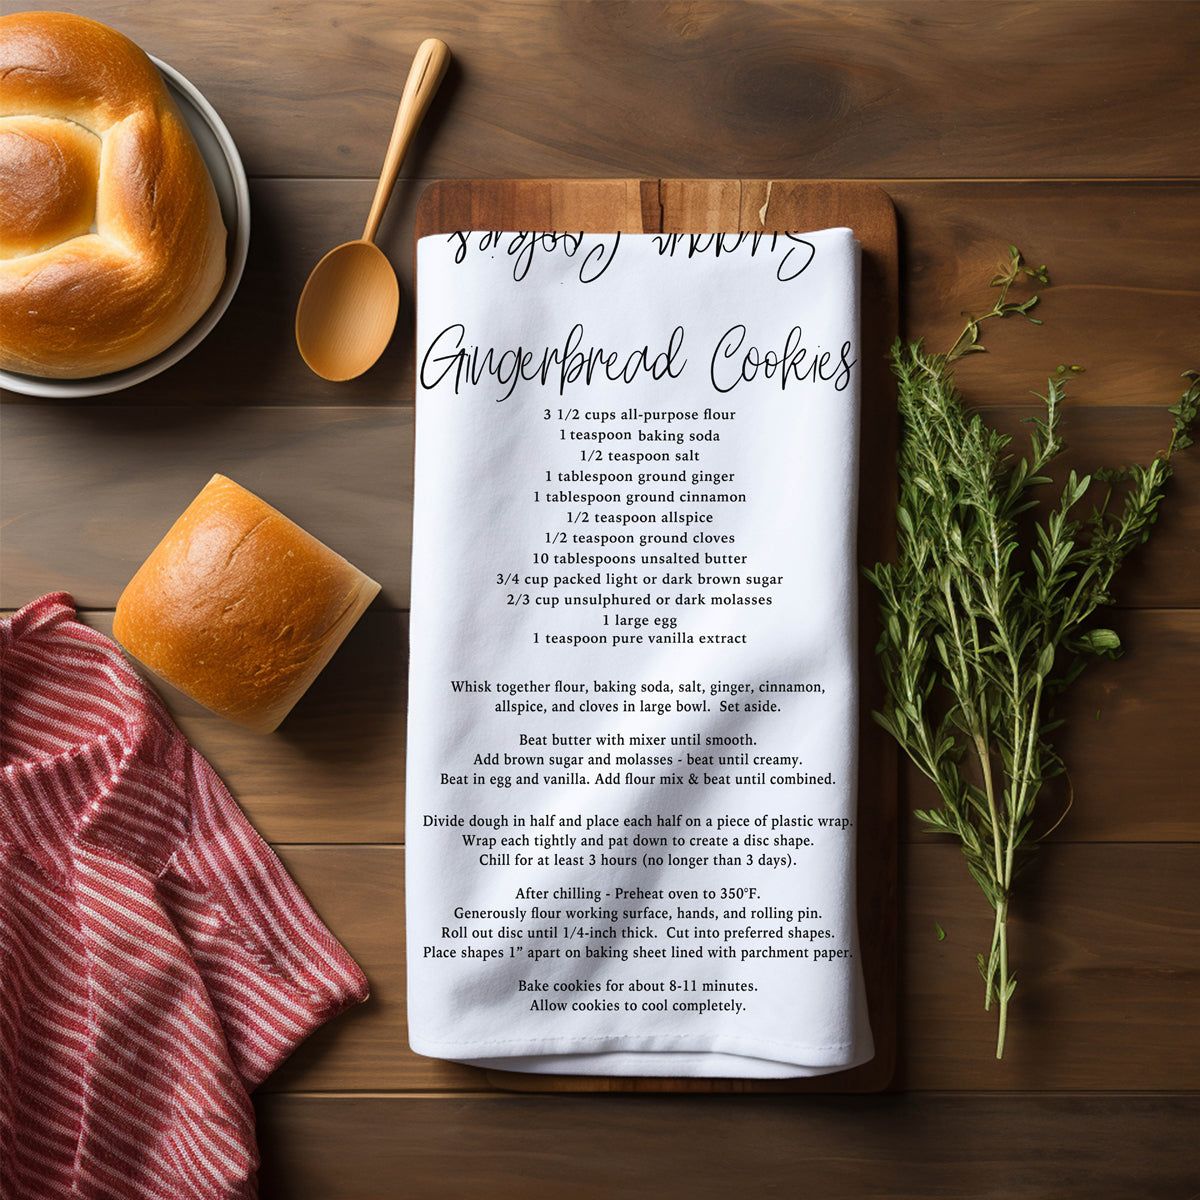 Sugar Cookies
Gingerbread Cookies
3 1/2 cups all-purpose flour
1 teaspoon baking soda
1/2 teaspoon salt
1 tablespoon ground ginger
1 tablespoon ground cinnamon
1/2 teaspoon allspice
1/2 teaspoon ground cloves
10 tablespoons unsalted butter
3/4 cup packed light or dark brown sugar
2/3 cup unsulphured or dark molasses
1 large egg
1 teaspoon pure vanilla extract
Whisk together flour, baking soda, salt, ginger, cinnamon,
allspice, and cloves in large bowl. Set aside.
Beat butter with mixer until smooth.
Add brown sugar and molasses - beat until creamy.
Beat in egg and vanilla. Add flour mix & beat until combined.
Divide dough in half and place each half on a piece of plastic wrap.
Wrap each tightly and pat down to create a disc shape.
Chill for at least 3 hours (no longer than 3 days).
After chilling - Preheat oven to 350°F.
Generously flour working surface, hands, and rolling pin.
Roll out disc until 1/4-inch thick. Cut into preferred shapes.
Place shapes 1” apart on baking sheet lined with parchment paper.
Bake cookies for about 8-11 minutes.
Allow cookies to cool completely.